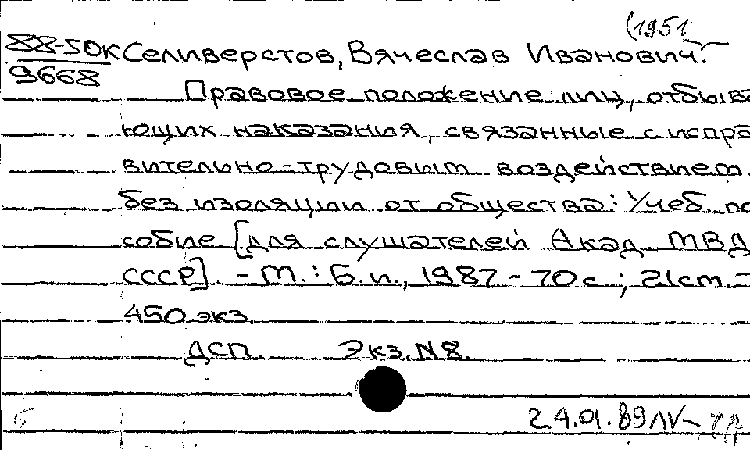 (1951
88-50к Селиверстов, Вячеслав Иванович.
9668
Правовое положение лиц, отбыва
ющих наказания, связанные с испра
вительно-трудовым воздействием
без изоляции от общества: Учеб. по
собие [для слушателей Акад. МВД
СССР]. - М.: Б.и., 1987 - 70 с.; 21 см. -
450 экз.
ДСП. Экз. N 8.
Б 24.01.89